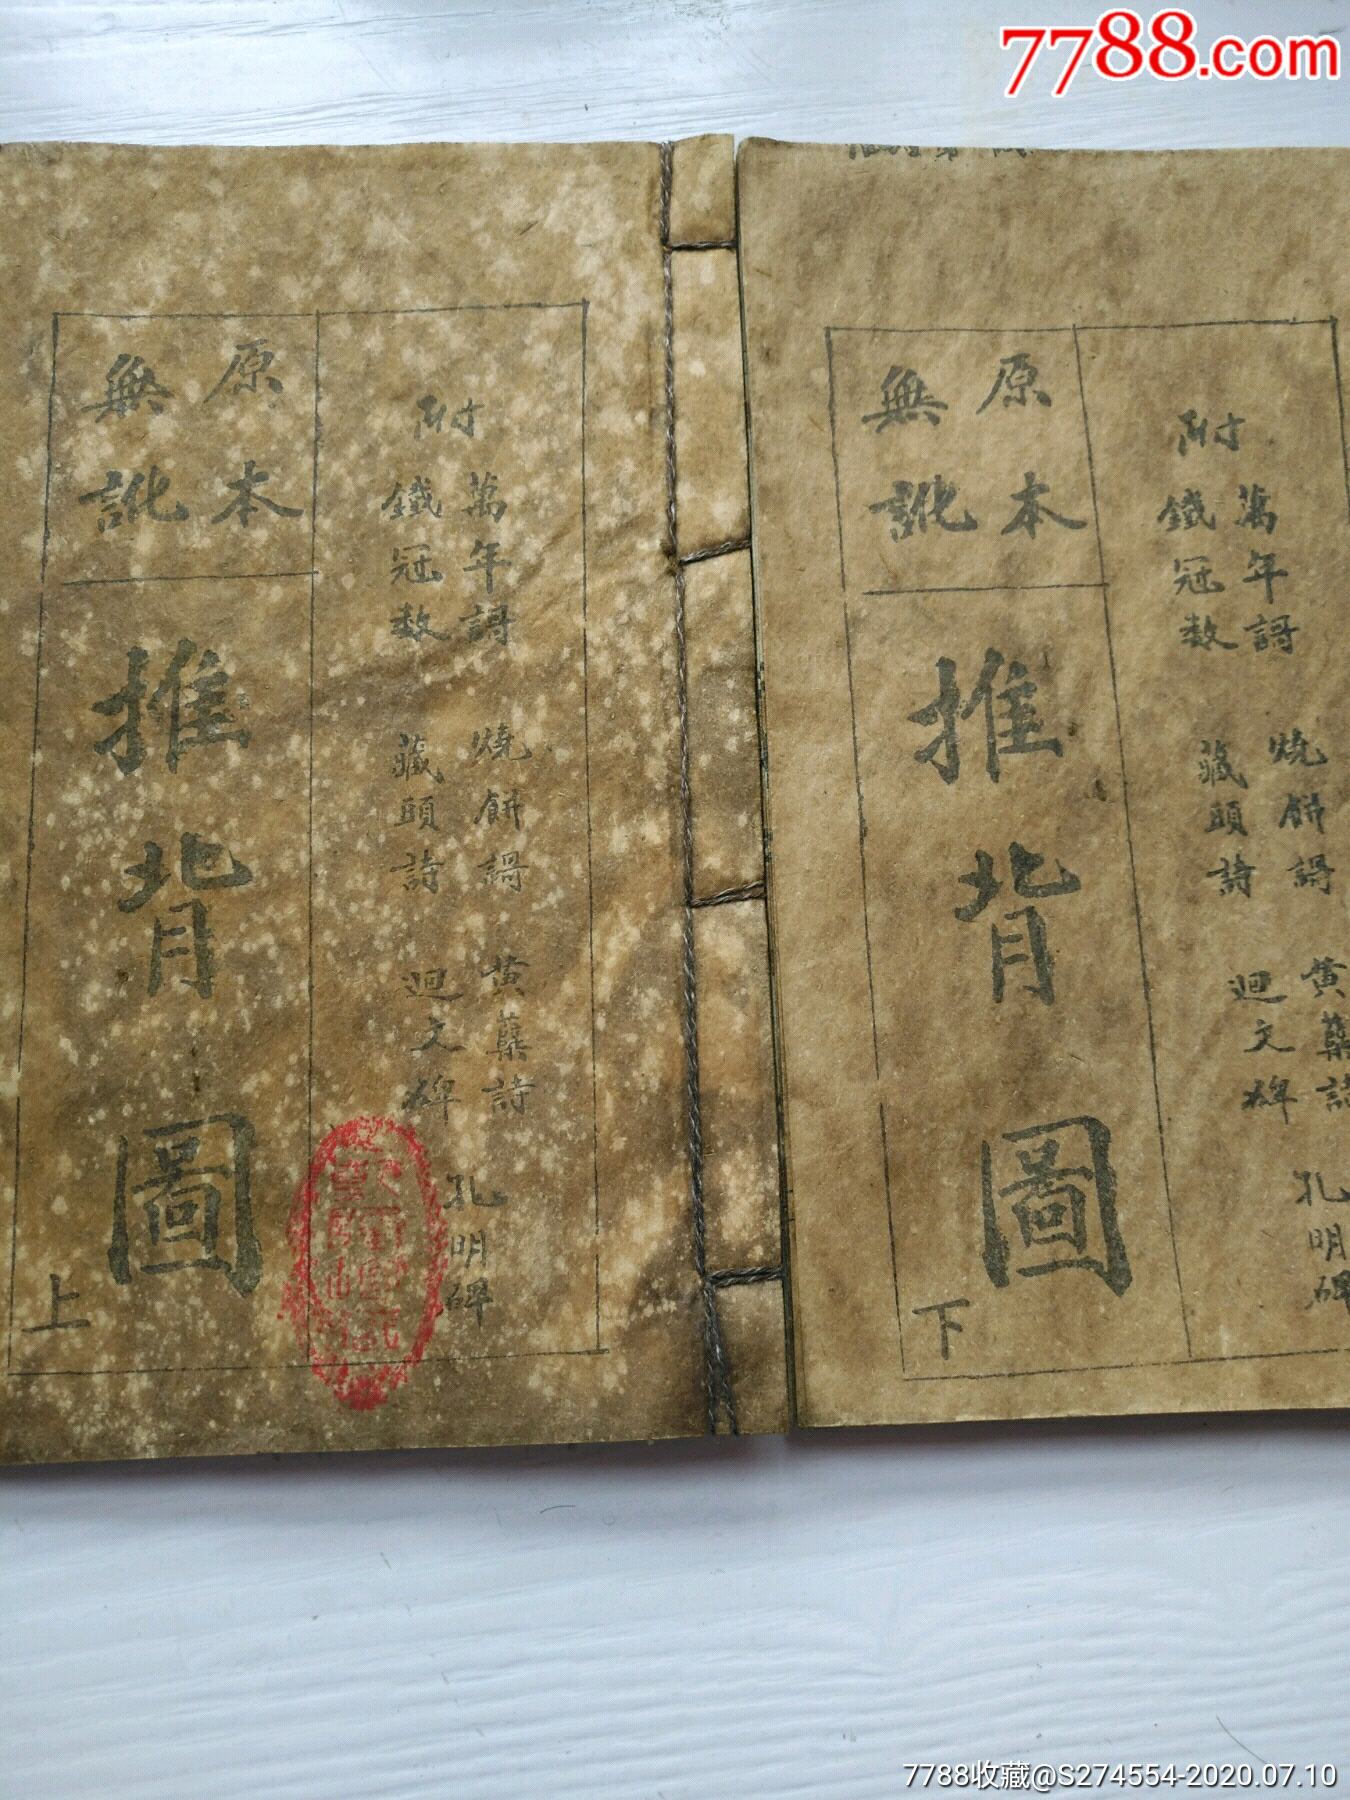 7788.com
附
萬年謌 燒餅謌 黄蘗詩 孔明碑
鐵冠数 藏頭詩 迴文碑
原本
無訛
推背圖
上
附
萬年謌 燒餅謌 黄蘗詩 孔明碑
鐵冠数 藏頭詩 迴文碑
原本
無訛
推背圖
下
7788收藏@S274554-2020.07.10